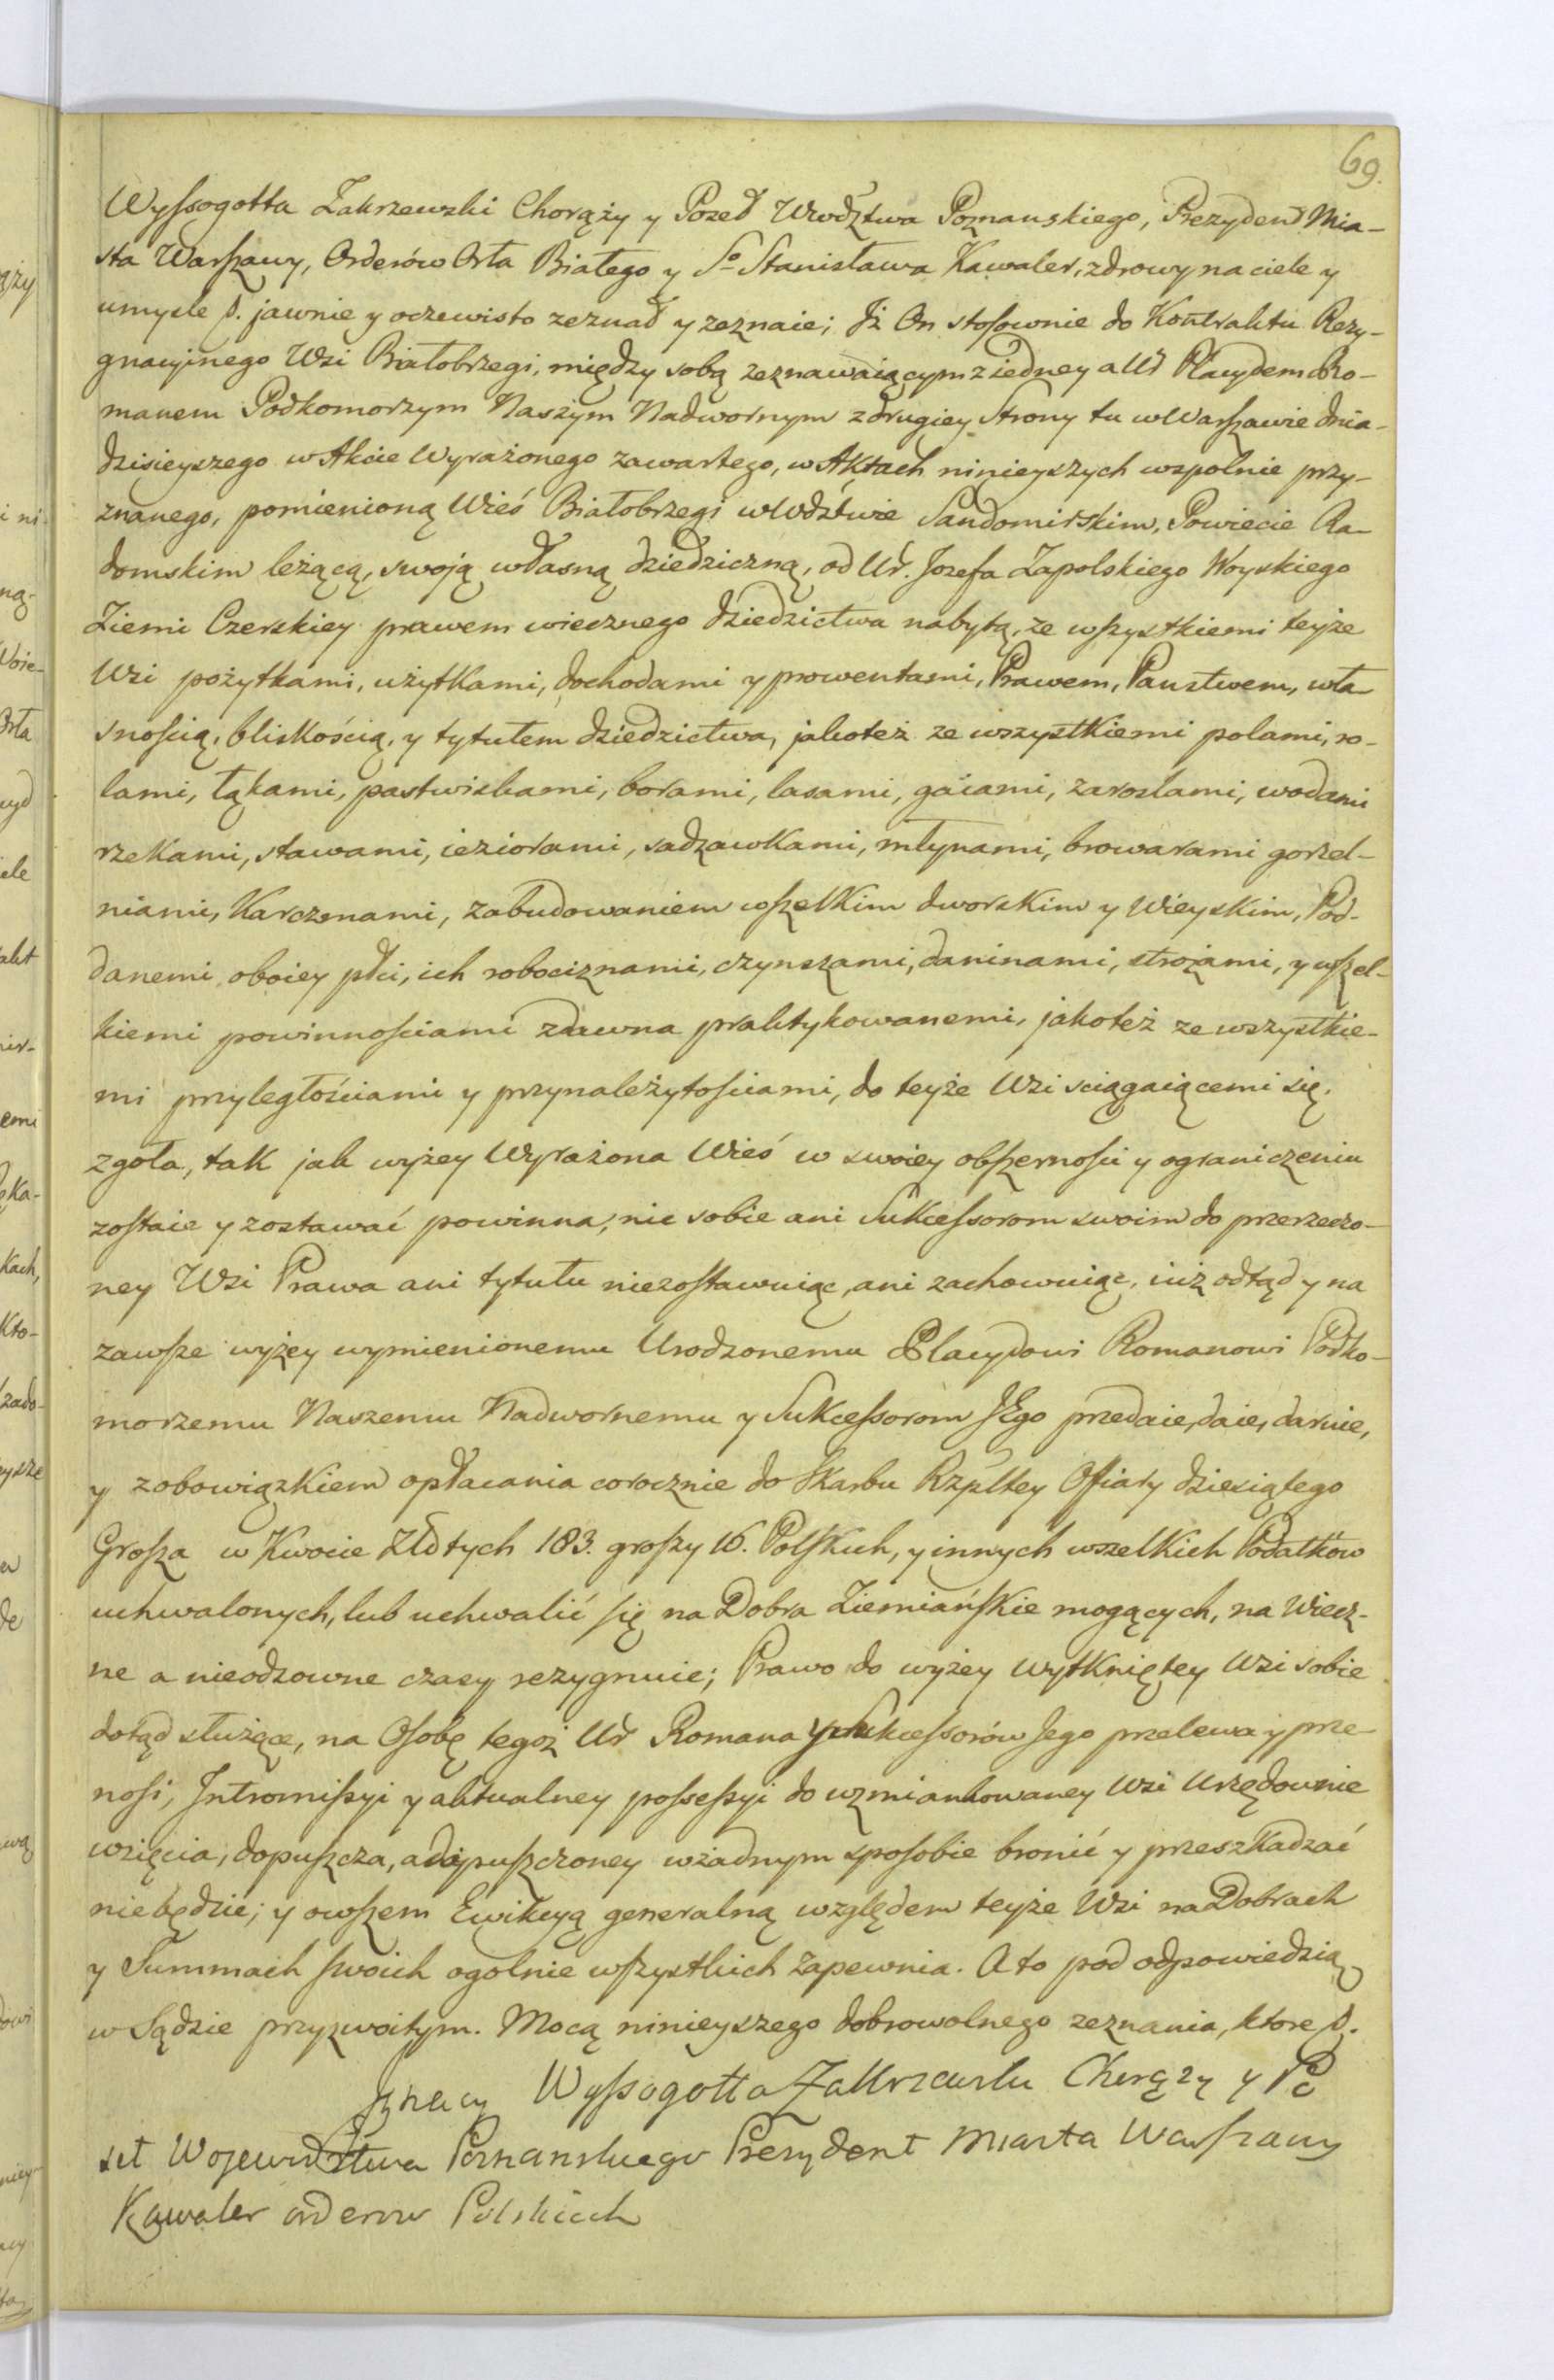 69.
Wyssogotta Zakrzewski Chorąży y Poseł Wwdztwa Poznanskiego, Prezydent Mia-
sta Warszawy, Orderów Orła Białego y Sº Stanisława Kawaler, zdrowy na ciele y
umysle p. jawnie y oczewisto zeznał y zeznaie; Iż On stosownie do Kontraktu Rezy-
gnacyinego Wsi Białobrzegi, między sobą zeznawaiącym z iedney a Ur Placydem Ro-
manem Podkomorzym Naszym Nadwornym z drugiey Strony tu w Warszawie dnia
dzisieyszego w Akcie Wyrażonego zawartego, w Aktach ninieyszych wspolnie przy-
znanego, pomienioną Wieś Białobrzegi w Wdztwie Sandomirskim, Powiecie Ra-
domskim leżącą, swoją własną dziedziczną, od Ur. Jozefa Zapolskiego Woyskiego
Ziemi Czerskiey prawem wiecznego dziedzictwa nabytą, ze wszystkiemi teyże
Wsi pożytkami, użytkami, dochodami y prowentami, Prawem, Panstwem, wła-
snością, bliskością, y tytułem dziedzictwa, jakoteż ze wszystkiemi polami, ro-
lami, łąkami, pastwiskami, borami, lasami, gaiami, zaroslami, wodami
rzekami, stawami, ieziorami, sadzawkami, młynami, browarami gorzel-
niami, Karczmami, zabudowaniem wszelkim dworskim y Wieyskim, Pod-
danemi oboiey płci, ich robociznami, czynszami, daninami, strożami, y wszel-
kiemi powinnościami zdawna praktykowanemi, jakoteż ze wszystkie-
mi przyległościami y przynależytościami, do teyże Wsi sciągaiącemi się.
zgoła, tak jak wyżey Wyrażona Wieś w swoiey obszerności y ograniczeniu
zostaie y zostawać powinna, nic sobie ani Sukcessorom swoim do przerzeczo-
ney Wsi Prawa ani tytułu niezostawuiąc, ani zachowuiąc, iuż odtąd y na
zawsze wyżey wymienionemu Urodzonemu Placydowi Romanowi Podko-
morzemu Naszemu Nadwornemu y Sukcessorom JEgo przedaie, daie, daruie,
y z obowiązkiem opłacania corocznie do Skarbu Rzpltey Ofiary dziesiątego
Grosza w Kwocie Złotych 183. groszy 16. Polskich, y innych wszelkich Podatków
uchwalonych, lub uchwalić się na Dobra Ziemiańskie mogących, na Wiecz-
ne a nieodzowne czasy rezygnuie; Prawo do wyżey wytkniętey Wsi sobie
dotąd służące, na Osobę tegoż Ur Romana y Sukcessorów Jego przelewa y prze-
nosi, Intromissyi y aktualney possessyi do wzmiankowaney Wsi Urzędownie
wzięcia, dopuszcza, a dopuszczoney w żadnym sposobie bronić y przeszkadzać
niebędzie; y owszem Ewikcyą generalną względem teyże Wsi na Dobrach
y Summach swoich ogolnie wszystkich zapewnia. A to pod odpowiedzią
w Sądzie przyzwoitym. Mocą ninieyszego dobrowolnego zeznania, ktore p.
Ignacy Wyssogotta Zakrzewski Chorąży y Po
seł Wojewodztwa Poznanskiego Prezydent Miasta Warszawy
Kawaler orderow Polskich